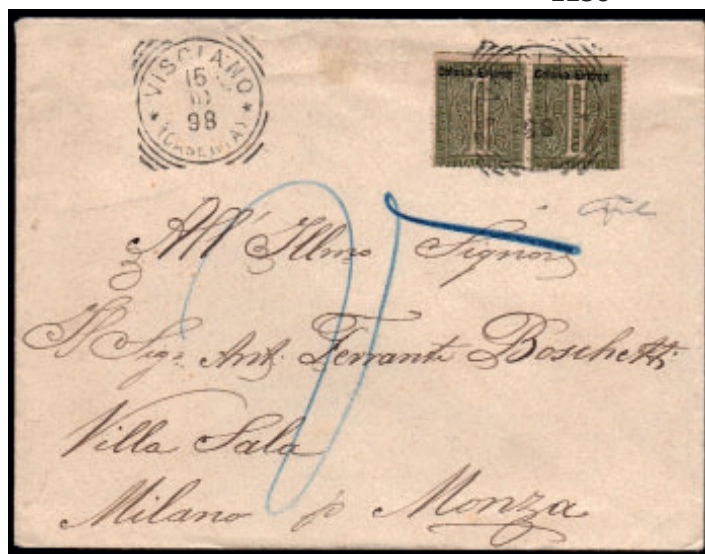 VISCIANO
15
98
(CASERTA)
Colonia Eritrea Colonia Eritrea
98
All' Illmo Signore
Il Sig. Ant. Ferrante Boschetti
Villa Sala
Milano p Monza